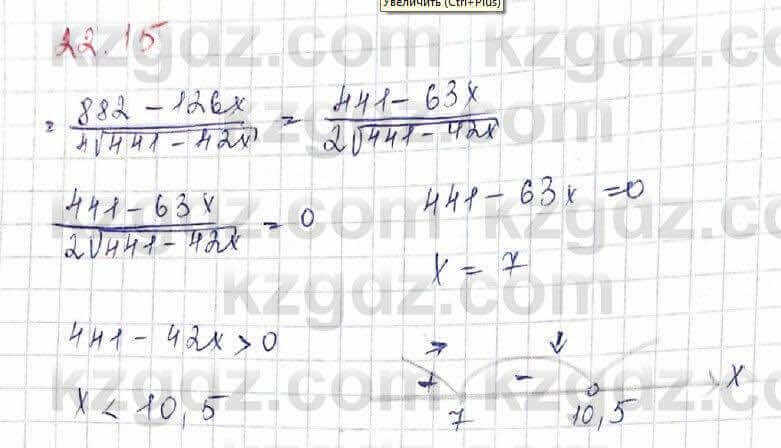 Увеличить (Ctrl+Plus)
22.15
= (882 - 126x)/(4√(441 - 42x)) = (441 - 63x)/(2√(441 - 42x))
(441 - 63x)/(2√(441 - 42x)) = 0
441 - 63x = 0
x = 7
441 - 42x > 0
x < 10,5
+ - x
7 10,5
kzgdz.com